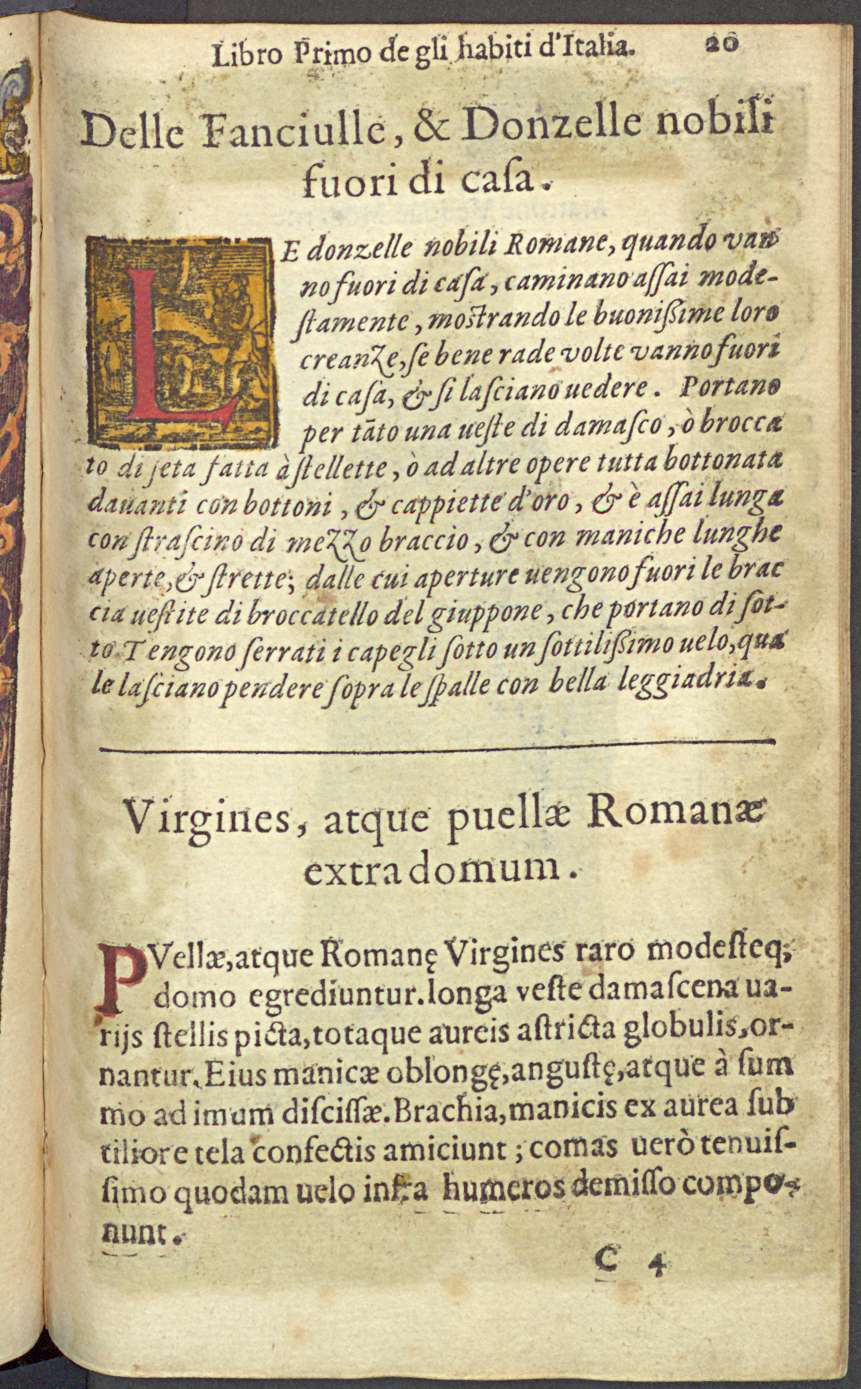 Libro Primo de gli habiti d'Italia. 20
Delle Fanciulle, & Donzelle nobili
fuori di caſa.
LE donzelle nobili Romane, quando van
no fuori di caſa, caminano aſſai mode-
ſtamente, moſtrando le buonißime loro
creanze, ſe bene rade volte vanno fuori
di caſa, & ſi laſciano uedere. Portano
per tāto una ueſte di damaſco, ò brocca
to di ſeta fatta à ſtellette, ò ad altre opere tutta bottonata
dauanti con bottoni, & cappiette d'oro, & è aſſai lunga
con ſtraſcino di mezzo braccio, & con maniche lunghe
aperte, & ſtrette; dalle cui aperture uengono fuori le brac
cia ueſtite di broccatello del giuppone, che portano di ſot-
to. Tengono ſerrati i capegli ſotto un ſottilißimo uelo, qua
le laſciano pendere ſopra le ſpalle con bella leggiadria.
Virgines, atque puellæ Romanæ
extra domum.
PVellæ, atque Romanę Virgines raro modeſteq;
domo egrediuntur. longa veſte damaſcena ua-
rijs ſtellis picta, totaque aureis aſtricta globulis, or-
nantur. Eius manicæ oblongę, anguſtę, atque à ſum
mo ad imum diſciſſæ. Brachia, manicis ex aurea ſub
tiliore tela confectis amiciunt; comas uerò tenuiſ-
ſimo quodam uelo infra humeros demiſſo compo-
nunt.
C 4